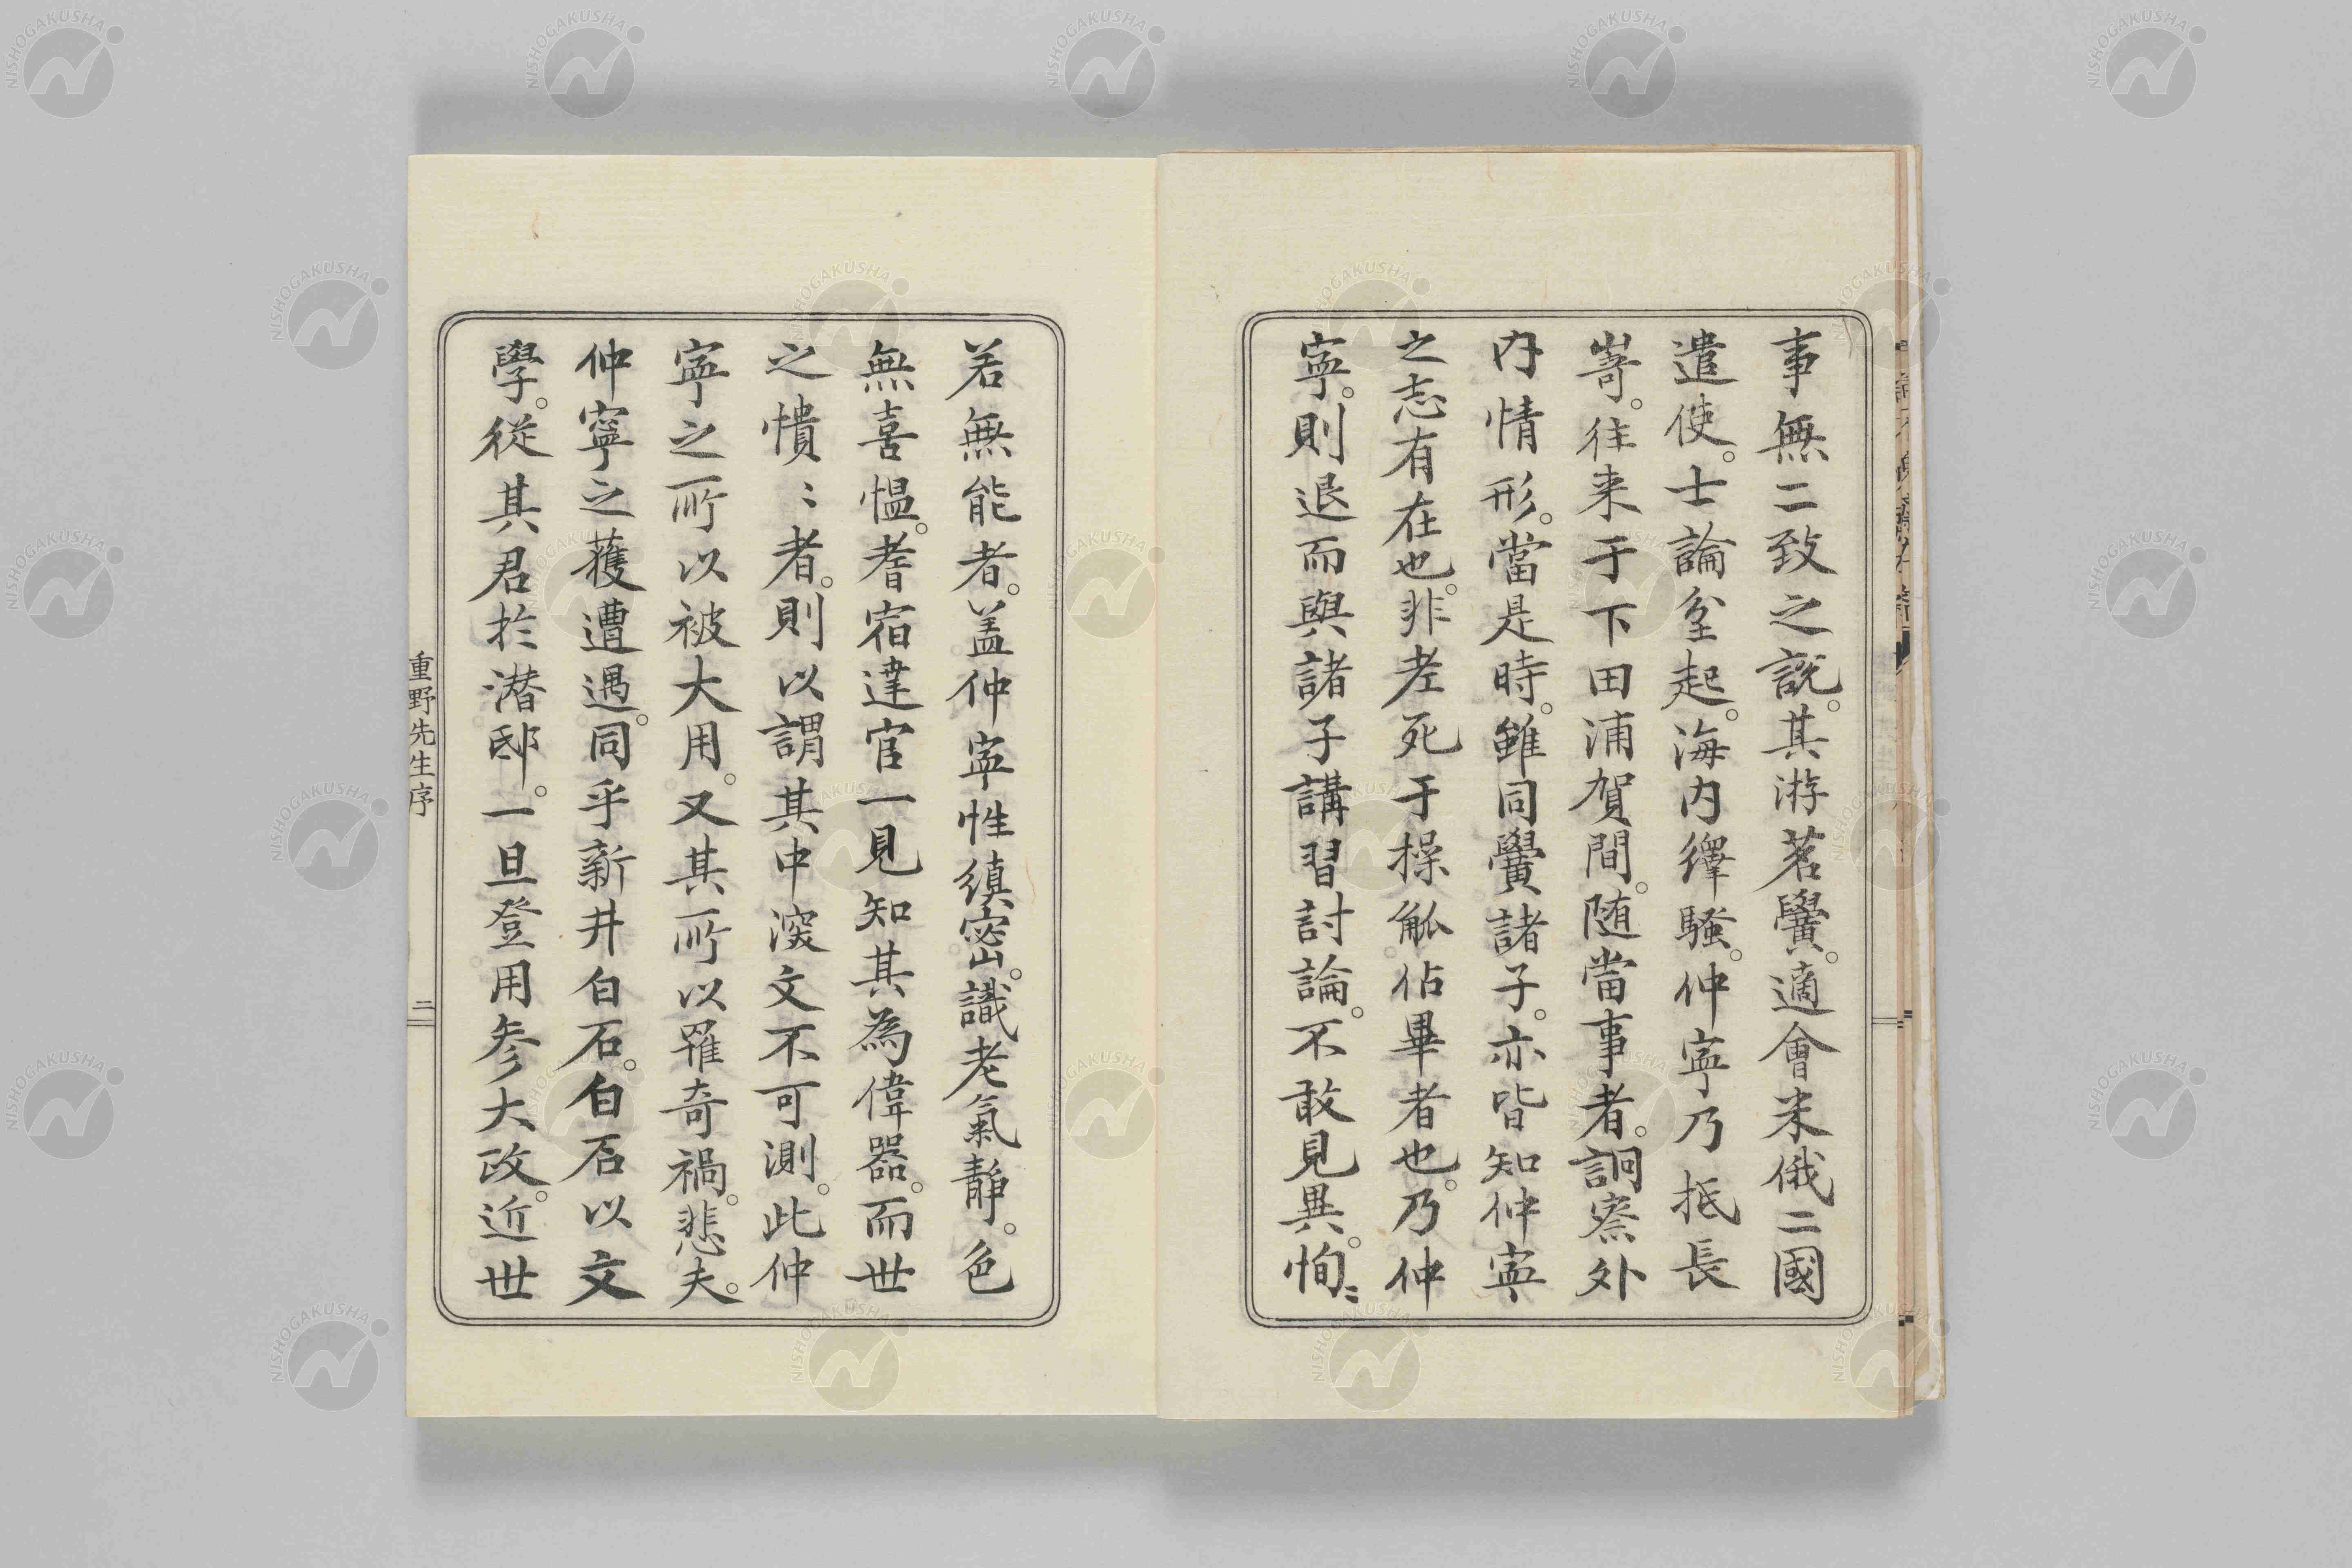 事無二致之說。其游茗黌。適會米俄二國
遣使。士論坌起。海内繹騷。仲寧乃抵長
嵜。往来于下田浦賀間。随當事者。詗察外
内情形。當是時。雖同黌諸子。亦皆知仲寧
之志有在也。非老死于操觚佔畢者也。乃仲
寧。則退而與諸子講習討論。不敢見異。恂〻
若無能者。盖仲寧性縝密。識老氣静。色
無喜愠。耆宿達官一見知其為偉器。而世
之憒〻者。則以謂其中深文不可測。此仲
寧之所以被大用。又其所以罹奇禍。悲夫。
仲寧之獲遭遇。同乎新井白石。白石以文
學。從其君於潜邸。一旦登用参大政。近世
重野先生序
二